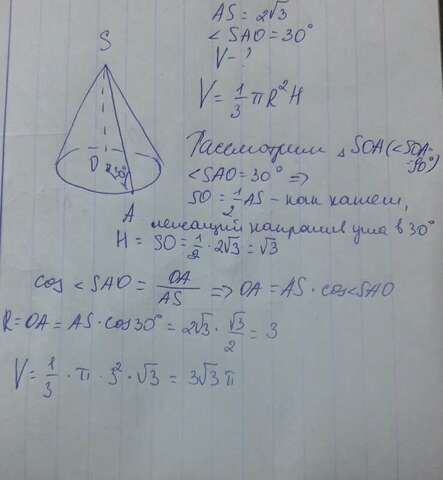 AS = 2√3
<SAO = 30°
V - ?
V = 1/3 πR²H
S
O
30°
A
Рассмотрим △ SOA (<SOA = 90°)
<SAO = 30° =>
SO = 1/2 AS - как катет,
лежащий напротив угла в 30°
H = SO = 1/2 · 2√3 = √3
cos <SAO = OA/AS => OA = AS · cos<SAO
R = OA = AS · cos 30° = 2√3 · √3/2 = 3
V = 1/3 · π · 3² · √3 = 3√3 π